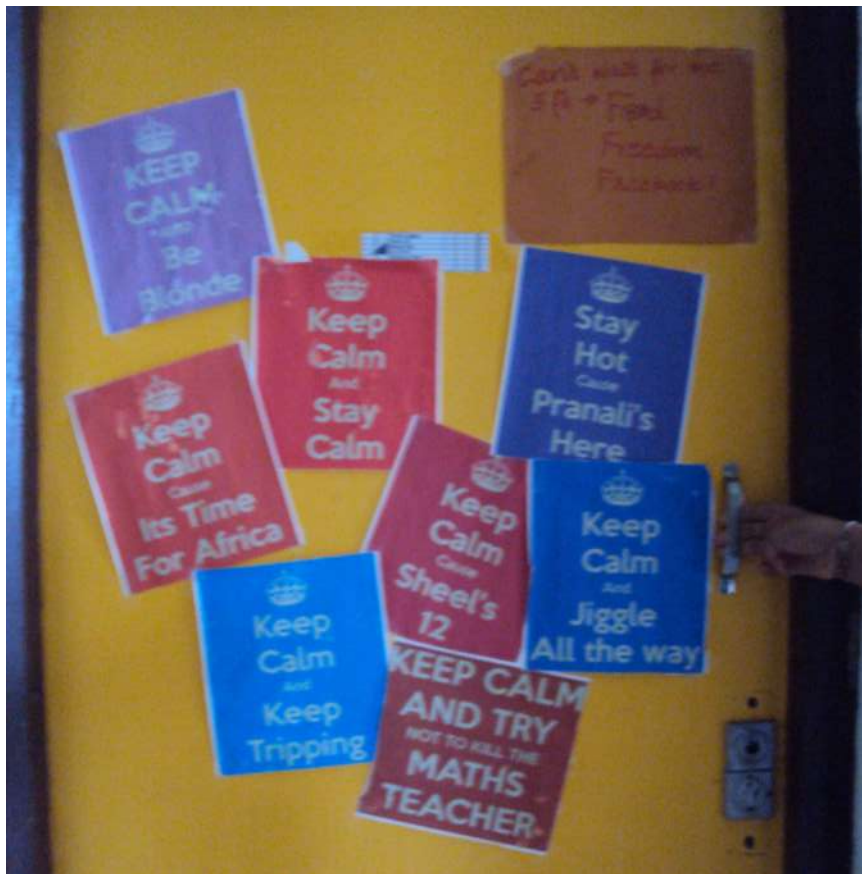 KEEP
CALM
AND
Be
Blonde
Can't wait for the
3 Fs → Food
Freedom
Facebook!
Keep
Calm
And
Stay
Calm
Stay
Hot
Cause
Pranali's
Here
Keep
Calm
Cause
Its Time
For Africa
Keep
Calm
Cause
Sheel's
12
Keep
Calm
And
Jiggle
All the way
Keep
Calm
And
Keep
Tripping
KEEP CALM
AND TRY
NOT TO KILL THE
MATHS
TEACHER